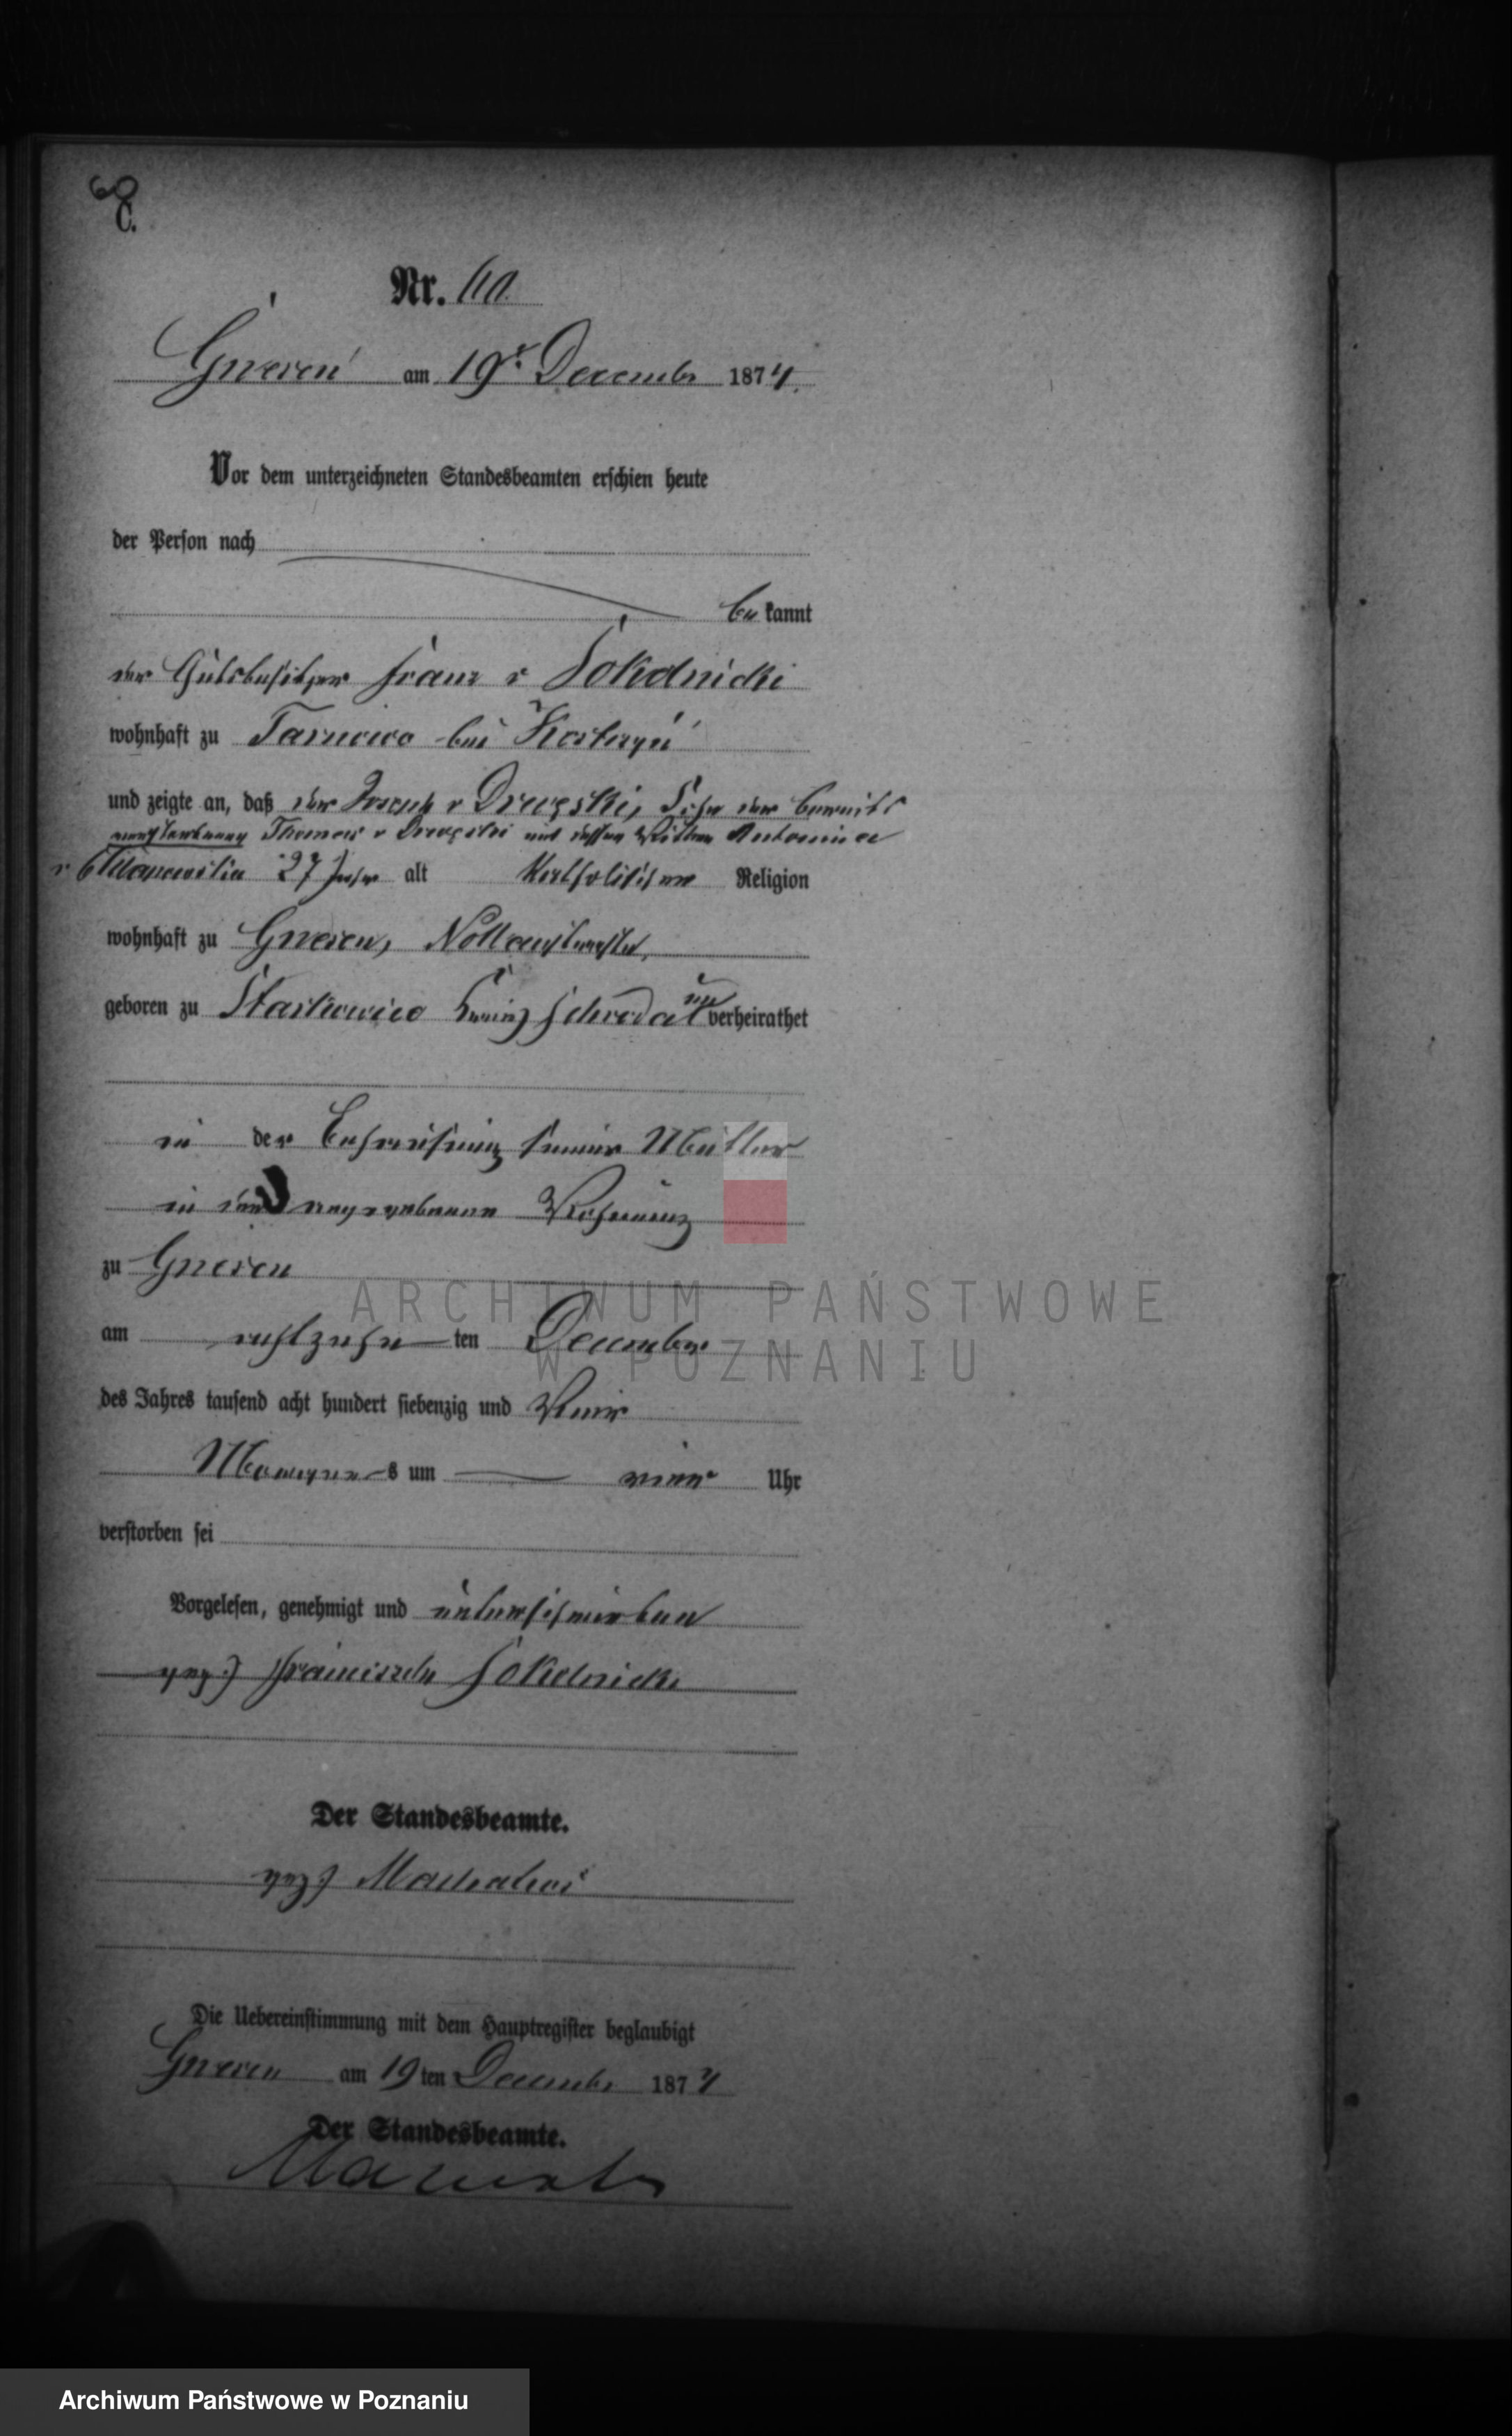 C.
Nr. 60.
Gnesen am 19t December 1874.
Vor dem unterzeichneten Standesbeamten erschien heute
der Person nach
bekannt
der Gutsbesitzer Franz v Sokolnicki
wohnhaft zu Tarnowo bei Kostrzyn
und zeigte an, daß der Joseph v Drwęski, Sohn des bereits
verstorbenen Thomas v Drwęski und dessen Wittwe Antonina
27 Jahre alt katholischer Religion
wohnhaft zu Gnesen,
geboren zu Starkowiec Kreis Schroda unverheirathet
in der Behausung seiner Mutter
in der angegebenen Wohnung
zu Gnesen
am achtzehnten December
des Jahres tausend acht hundert siebenzig und vier
Morgens um vier Uhr
verstorben sei
Vorgelesen, genehmigt und unterschrieben
gez) Franciszek Sokolnicki
Der Standesbeamte.
gez)
Die Uebereinstimmung mit dem Hauptregister beglaubigt
Gnesen am 19ten December 1874
Der Standesbeamte.
ARCHIWUM PAŃSTWOWE
W POZNANIU
Archiwum Państwowe w Poznaniu